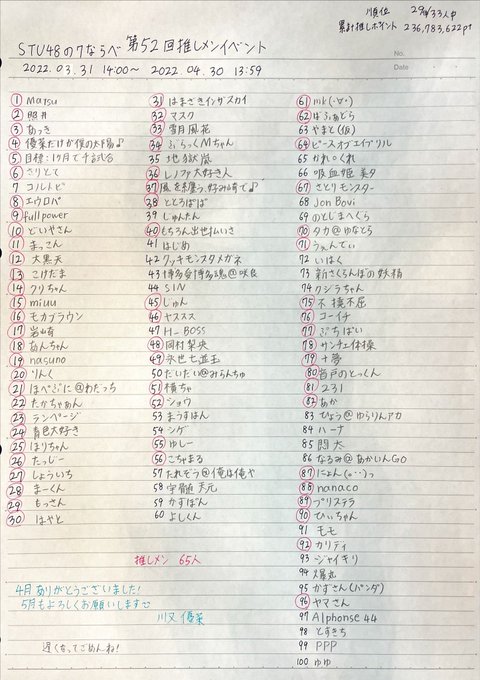 順位 29位/33人中
累計推しポイント 236,783,622pt
STU48の7ならべ 第52回推しメンイベント
No.
2022.03.31 14:00~ 2022.04.30 13:59
Date
1 Matsu
2 照井
3 あっき
4 優菜だけが僕の太陽♪
5 目標:17月で千試合
6 さりとて
7 コルトピ
8 エウロパ
9 fullpower
10 どいやさん
11 まっこん
12 大黒天
13 こけだま
14 クリちゃん
15 miuu
16 モカブラウン
17 岩崎
18 あんちゃん
19 nasuno
20 りんく
21 はぺぷに@わだっち
22 たかちゃあん
23 ランページ
24 青色大好き
25 ほりちゃん
26 たっじー
27 しょういち
28 まーくん
29 もっさん
30 はやと
31 はまさきインザスカイ
32 マスク
33 雪月風花
34 ぶらっくMちゃん
35 地獄嵐
36 レノファ大好き人
37 風を纏う、好み崎で♪
38 ととろぱぱ
39 しゅんたん
40 もちろん出世払いさ
41 はじめ
42 クッキモンスタメガネ
43 博多愛博多魂@咲良
44 SIN
45 じゅん
46 ヤススス
47 H-BOSS
48 岡村梨央
49 永世七冠王
50 だいたい@みらんちゅ
51 横ちゃ
52 ショウ
53 まうすぱん
54 シゲ
55 ゆしー
56 こちゃまる
57 たれぞう@俺は俺や
58 宇髄天元
59 かずぽん
60 よしくん
61 mk(･∀･)
62 ばふぁどら
63 やまと(仮)
64 ピースオブエイプリル
65 かれ。くれ
66 吸血姫美夕
67 さとりモンスター
68 Jon Bovi
69 のとしまへくら
70 タカ@ゆなとら
71 うぇんてぃ
72 いはく
73 新さくらんぼの妖精
74 クジラちゃん
75 不撓不屈
76 コーイチ
77 ぷちぱい
78 サンチェ体操
79 十夢
80 音戸のとっくん
81 231
82 あか
83 ひょう@ゆらりんアカ
84 ハーナ
85 関大
86 なるみ@あかりんGO
87 にょん(｡･･)っ
88 nanaco
89 プリステラ
90 ひぃちゃん
91 モモ
92 カリディ
93 ジャイキリ
94 爆丸
95 かずさん(パンダ)
96 ヤマさん
97 Alphonse 44
98 とすきち
99 PPP
100 ゆゆ
推しメン 65人
4月ありがとうございました!
5月もよろしくお願いします♡
川又 優菜
遅くなってごめんね!